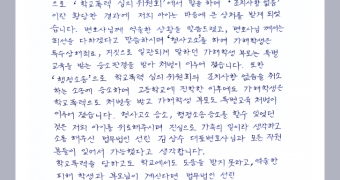 으로 "학교폭력 심의 위원회"에서 말을 하여 "조치사항 없음"
이란 황당한 결과에 저희 아이는 마음에 큰 상처를 받게 되었
습니다. 변호사님께 억울한 상황을 말씀드렸고, 변호사님 께서는
최선을 다하겠다고 말씀하시며 "형사고소"를 하여 가해학생은
특수상해죄로, 거짓으로 일관되게 말하던 가해학생 부모는 특별
교육을 받는 승소판결을 받아 처벌이 이루어 졌습니다. 또한
"행정소송"으로 학교폭력 심의 위원회의 조치사항 없음을 취소
하는 소송에 승소하여 고등학교에 진학한 이후에도 가해학생은
학교폭력으로 처분을 받고 가해학생 부모도 특별교육 처벌이
이루어 졌습니다. 형사고소 승소, 행정소송 승소를 할수 있었던
것은 저희 아이를 위로해주시며 진심으로 가족의 일이라 생각하고
소송 해주신 법무법인 선린 김상수 대표변호사님과 모든 직원
분들이 있어서 가능했다고 생각합니다.
학교폭력을 당하고도 학교에서도 도움을 받지 못하고, 억울한
피해 학생과 부모님이 계신다면 법무법인 선린